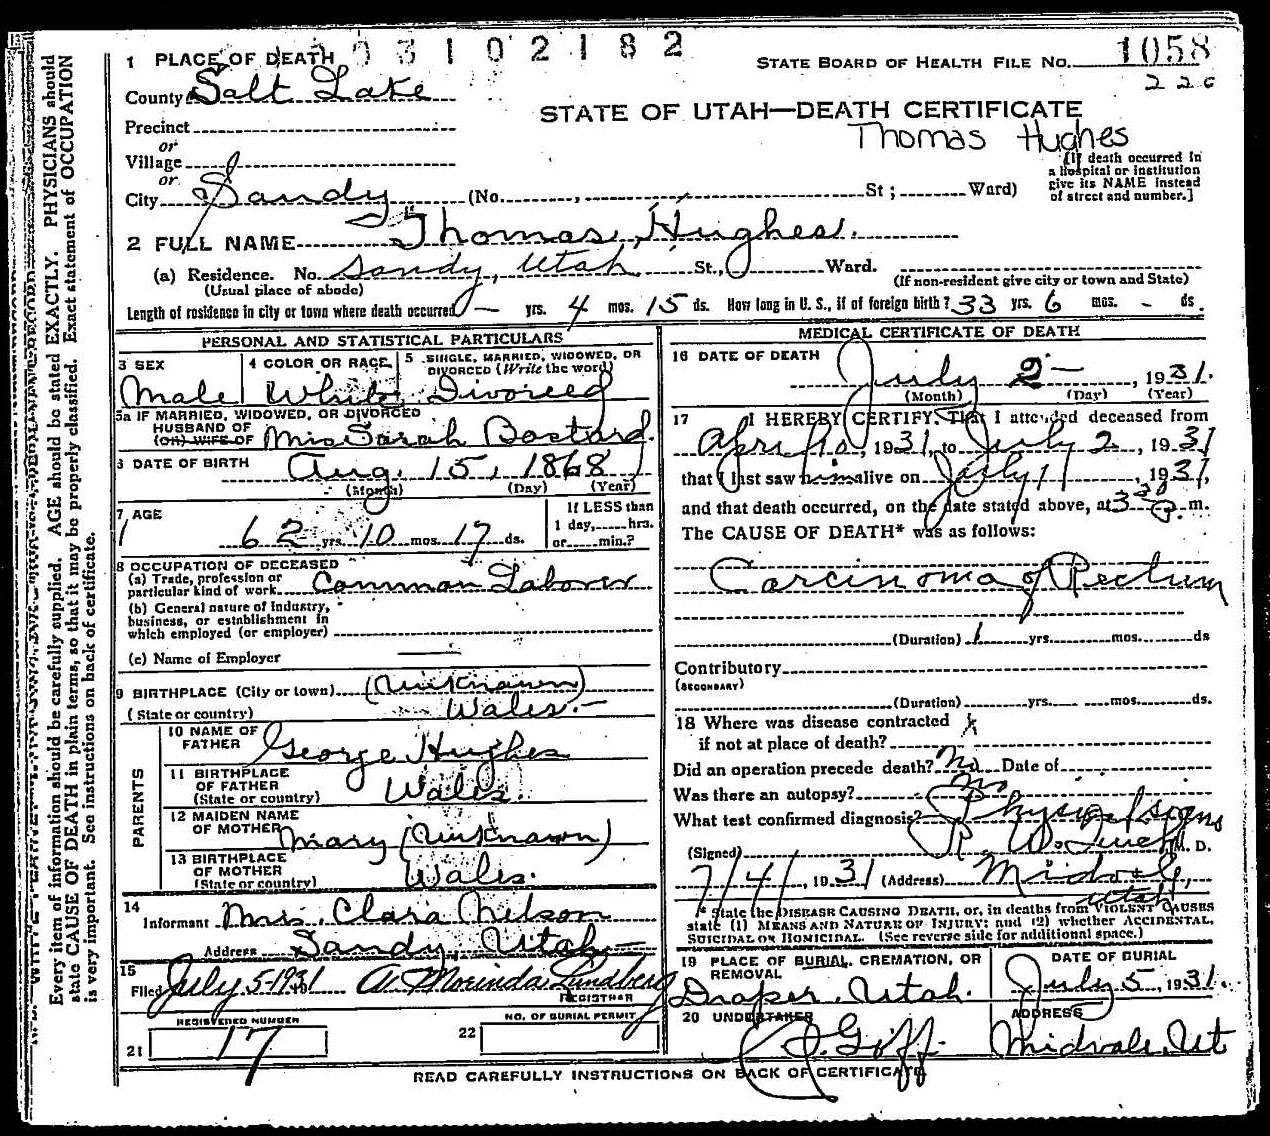 1 PLACE OF DEATH 03102182
STATE BOARD OF HEALTH FILE NO. 1058
County Salt Lake
STATE OF UTAH—DEATH CERTIFICATE
Thomas Hughes
Precinct
or
Village
or
City Sandy (No. St; Ward)
(If death occurred in
a hospital or institution
give its NAME instead
of street and number.]
2 FULL NAME Thomas Hughes.
(a) Residence. No. Sandy, Utah St., Ward.
(Usual place of abode)
(If non-resident give city or town and State)
Length of residence in city or town where death occurred — yrs. 4 mos. 15 ds. How long in U. S., if of foreign birth? 33 yrs. 6 mos. - ds.
PERSONAL AND STATISTICAL PARTICULARS
3 SEX
Male
4 COLOR OR RACE
White
5 SINGLE, MARRIED, WIDOWED, OR
DIVORCED (Write the word)
Divorced
5a IF MARRIED, WIDOWED, OR DIVORCED
HUSBAND OF
(OR) WIFE OF Mrs Sarah Bostard.
6 DATE OF BIRTH Aug. 15, 1868
(Month) (Day) (Year)
7 AGE
62 yrs. 10 mos. 17 ds.
If LESS than
1 day, hrs.
or min.?
8 OCCUPATION OF DECEASED
(a) Trade, profession or
particular kind of work Common Laborer
(b) General nature of Industry,
business, or establishment in
which employed (or employer)
(c) Name of Employer
9 BIRTHPLACE (City or town) (Unknown)
(State or country) Wales.
PARENTS
10 NAME OF
FATHER George Hughes
11 BIRTHPLACE
OF FATHER
(State or country) Wales.
12 MAIDEN NAME
OF MOTHER Mary (Unknown)
13 BIRTHPLACE
OF MOTHER
(State or country) Wales.
14
Informant Mrs. Clara Nilson
Address Sandy, Utah
15
Filed July 5-1931 A. Morinda Lundberg
REGISTRAR
REGISTERED NUMBER
21 17
NO. OF BURIAL PERMIT
22
MEDICAL CERTIFICATE OF DEATH
16 DATE OF DEATH
July 2 , 1931.
(Month) (Day) (Year)
17 I HEREBY CERTIFY, That I attended deceased from
April 10, 1931, to July 2, 1931
that I last saw him alive on July 1, 1931,
and that death occurred, on the date stated above, at 3 m.
The CAUSE OF DEATH* was as follows:
Carcinoma of Rectum
(Duration) 1 yrs. mos. ds
Contributory
(SECONDARY)
(Duration) yrs. mos. ds.
18 Where was disease contracted
if not at place of death?
Did an operation precede death? No Date of
Was there an autopsy? No
What test confirmed diagnosis? Physical signs
(Signed) R. W. M. D.
7/4/, 1931 (Address) Midvale,
Utah
* State the DISEASE CAUSING DEATH, or, in deaths from VIOLENT CAUSES
state (1) MEANS AND NATURE OF INJURY; and (2) whether ACCIDENTAL,
SUICIDAL OR HOMICIDAL. (See reverse side for additional space.)
19 PLACE OF BURIAL, CREMATION, OR
REMOVAL
Draper, Utah.
DATE OF BURIAL
July 5, 1931.
20 UNDERTAKER
Goff.
ADDRESS
Midvale, Ut
READ CAREFULLY INSTRUCTIONS ON BACK OF CERTIFICATE
Every item of information should be carefully supplied. AGE should be stated EXACTLY. PHYSICIANS should
state CAUSE OF DEATH in plain terms, so that it may be properly classified. Exact statement of OCCUPATION
is very important. See instructions on back of certificate.